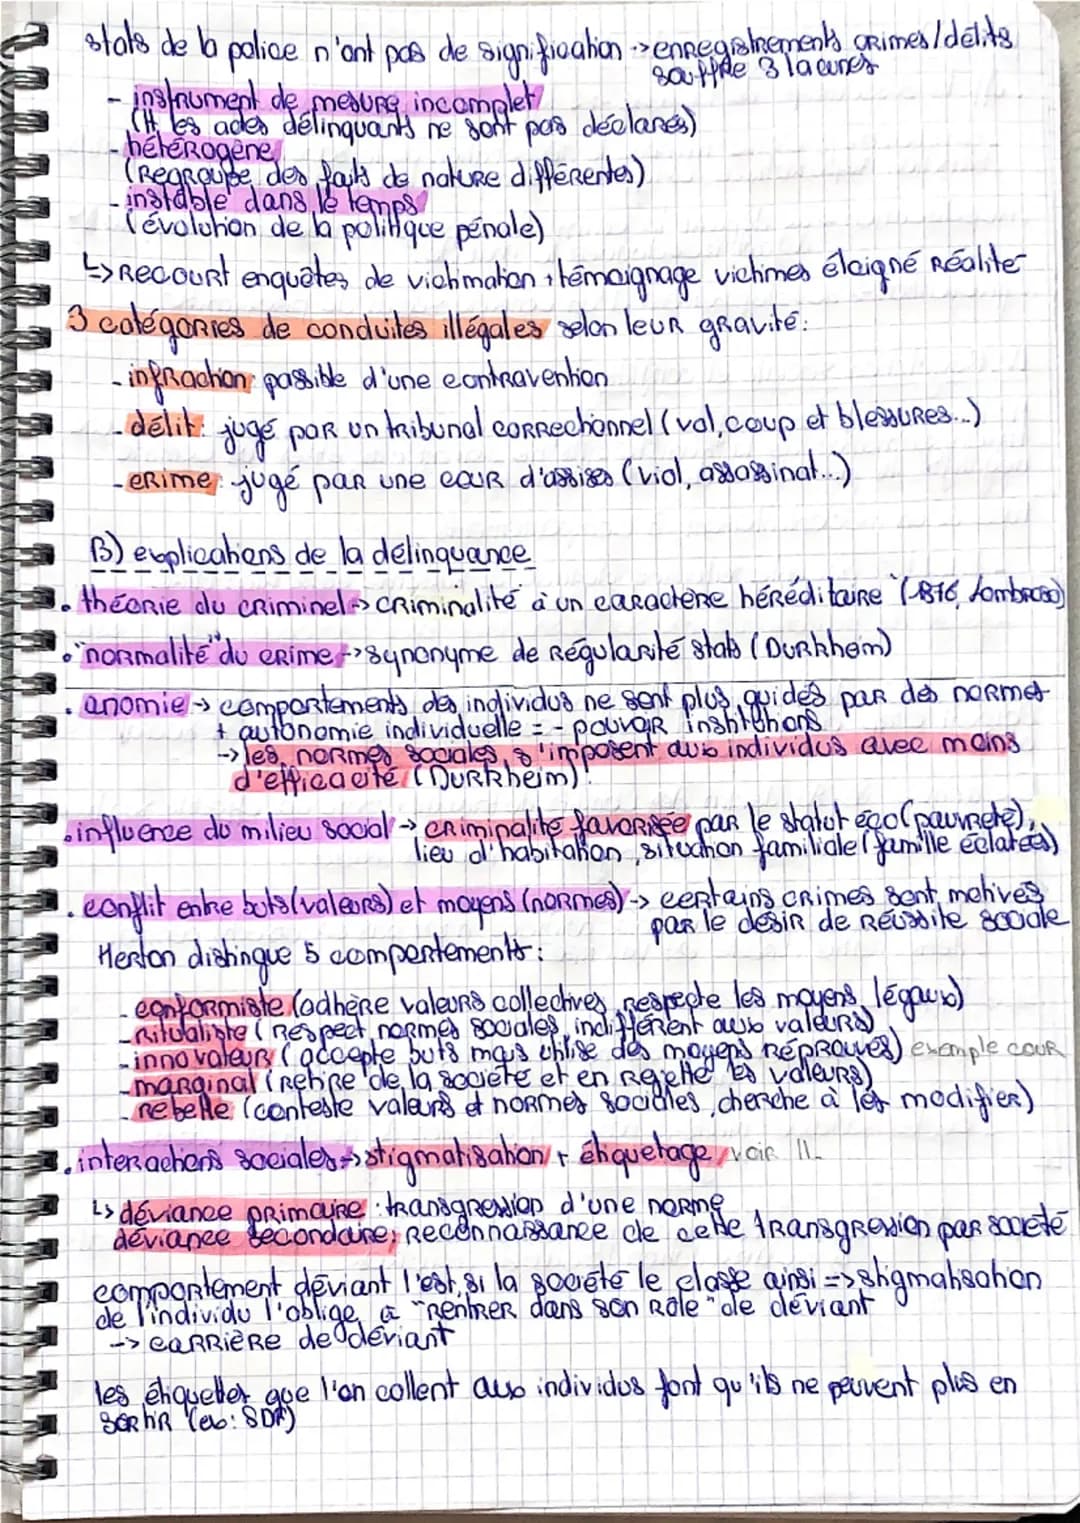 stats de la police n'ont pas de signification -> enregistrements crimes/délits
souffre 3 lacunes
- instrument de mesure incomplet
(tt les actes délinquants ne sont pas déclarés)
- hétérogène
(Regroupe des faits de nature différentes)
- instable dans le temps
(évolution de la politique pénale)
↳ Recourt enquêtes de victimation, témoignage victimes éloigné Réalité
3 catégories de conduites illégales selon leur gravité:
- infraction: passible d'une contravention
- délit: jugé par un tribunal correctionnel (vol, coup et blessures...)
- crime: jugé par une cour d'assises (viol, assassinat...)
B) explications de la délinquance
• théorie du criminel -> criminalité à un caractère héréditaire (1876, Lombroso)
• "normalité" du crime -> synonyme de Régularité stats (Durkheim)
• anomie -> comportements des individus ne sont plus guidés par des normes
+ autonomie individuelle = - pouvoir institutions
-> les normes sociales s'imposent aux individus avec moins
d'efficacité (Durkheim)
• influence du milieu social -> criminalité favorisée par le statut éco (pauvreté),
lieu d'habitation, situation familiale (famille éclatées)
• conflit entre buts (valeurs) et moyens (normes) -> certains crimes sont motivés
par le désir de Réussite sociale
Merton distingue 5 comportements:
- conformiste (adhère valeurs collectives, respecte les moyens légaux)
- Ritualiste (Respect normes sociales, indifférent aux valeurs)
- innovateur (accepte buts mais utilise des moyens Réprouvés) exemple cour
- marginal (Retire de la société et en Rejette les valeurs)
- rebelle (conteste valeurs et normes sociales, cherche à les modifier)
• interactions sociales -> stigmatisation + étiquetage, voir II.
↳ déviance primaire: transgression d'une norme
déviance secondaire: Reconnaissance de cette transgression par société
comportement déviant l'est, si la société le classe ainsi => stigmatisation
de l'individu l'oblige à "rentrer dans son Rôle" de déviant
-> carrière de déviant
les étiquettes que l'on collent aux individus font qu'ils ne peuvent plus en
sortir (ex: SDF)